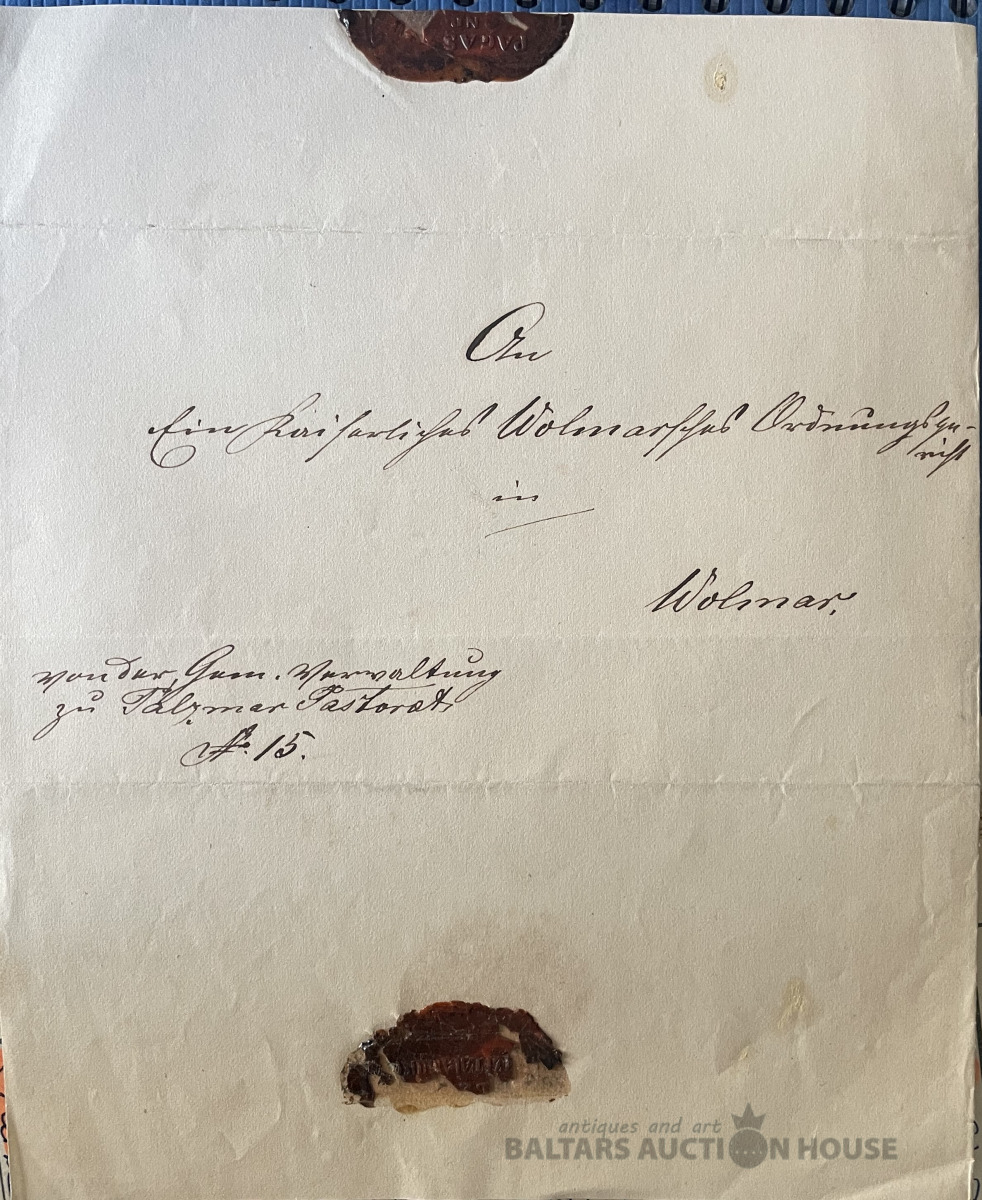 PAGAS
An
Ein Kaiserliches Wolmarsches Ordnungsge-
richt
in
Wolmar.
von der Gem. Verwaltung
zu Palzmar Pastorat
№ 15.
antiques and art
BALTARS AUCTION HOUSE